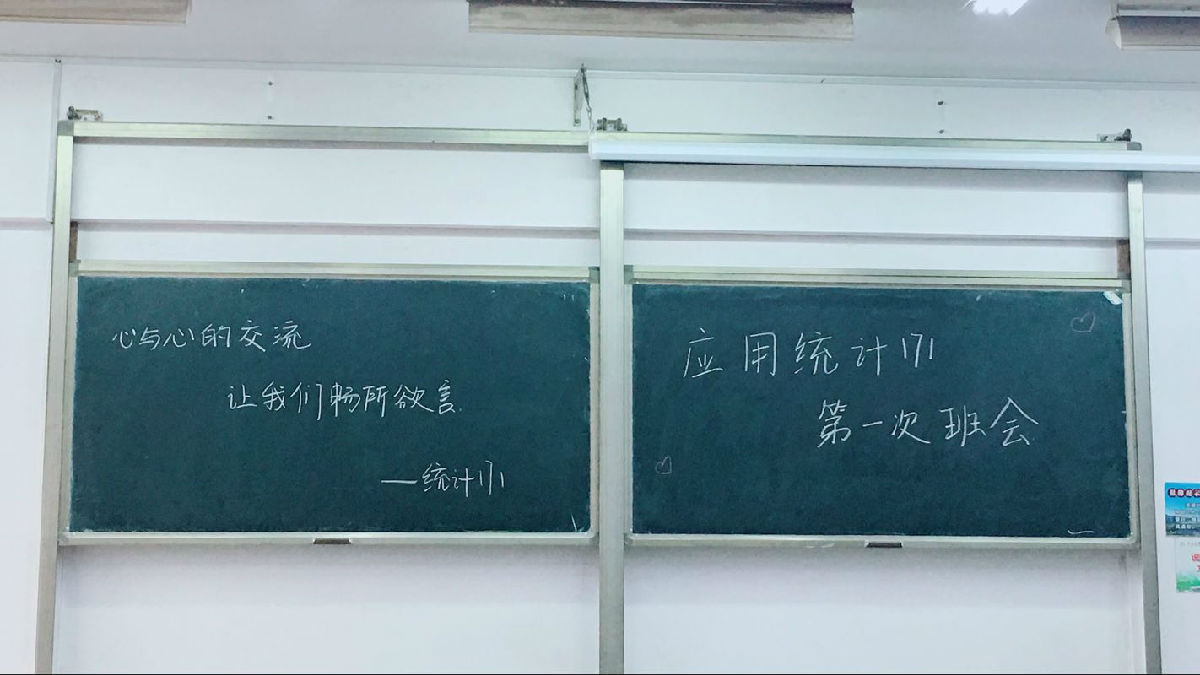 心与心的交流
让我们畅所欲言
—统计171
应用统计171
第一次班会